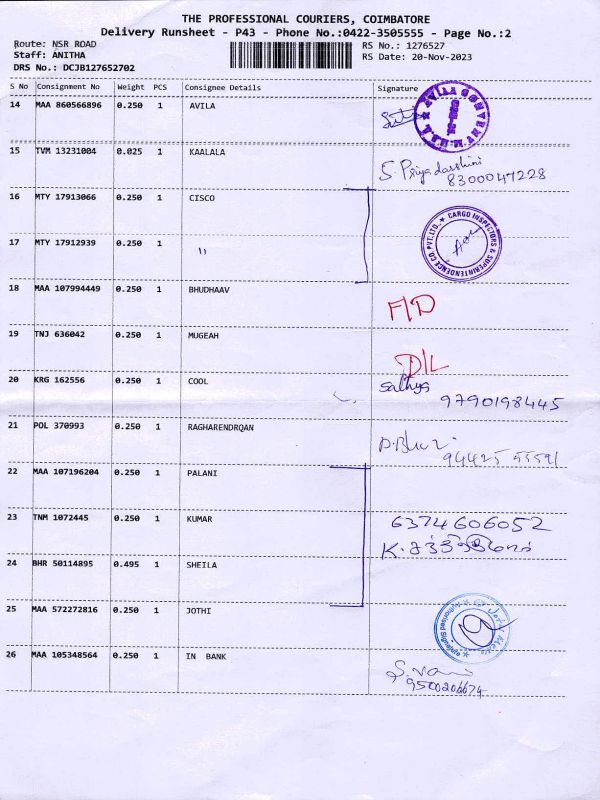 THE PROFESSIONAL COURIERS, COIMBATORE
Delivery Runsheet - P43 - Phone No.:0422-3505555 - Page No.:2
Route: NSR ROAD
RS No.: 1276527
Staff: ANITHA
RS Date: 20-Nov-2023
DRS No.: DCJB127652702
S No Consignment No Weight PCS Consignee Details Signature
14 MAA 860566896 0.250 1 AVILA
AVILA CONVENT M.H.S.S.
15 TVM 13231004 0.025 1 KAALALA
S. Priyadarshini
8300047228
16 MTY 17913066 0.250 1 CISCO
CARGO INSPECTORS & SUPERINTENDENCE CO. PVT. LTD.
17 MTY 17912939 0.250 1 "
18 MAA 107994449 0.250 1 BHUDHAAV
F/D
19 TNJ 636042 0.250 1 MUGEAH
D/L
20 KRG 162556 0.250 1 COOL
Sathya
9790198445
21 POL 370993 0.250 1 RAGHARENDRQAN
22 MAA 107196204 0.250 1 PALANI
23 TNM 1072445 0.250 1 KUMAR
6374606052
24 BHR 50114895 0.495 1 SHEILA
25 MAA 572272816 0.250 1 JOTHI
26 MAA 105348564 0.250 1 IN BANK
S. Vani
9500206674